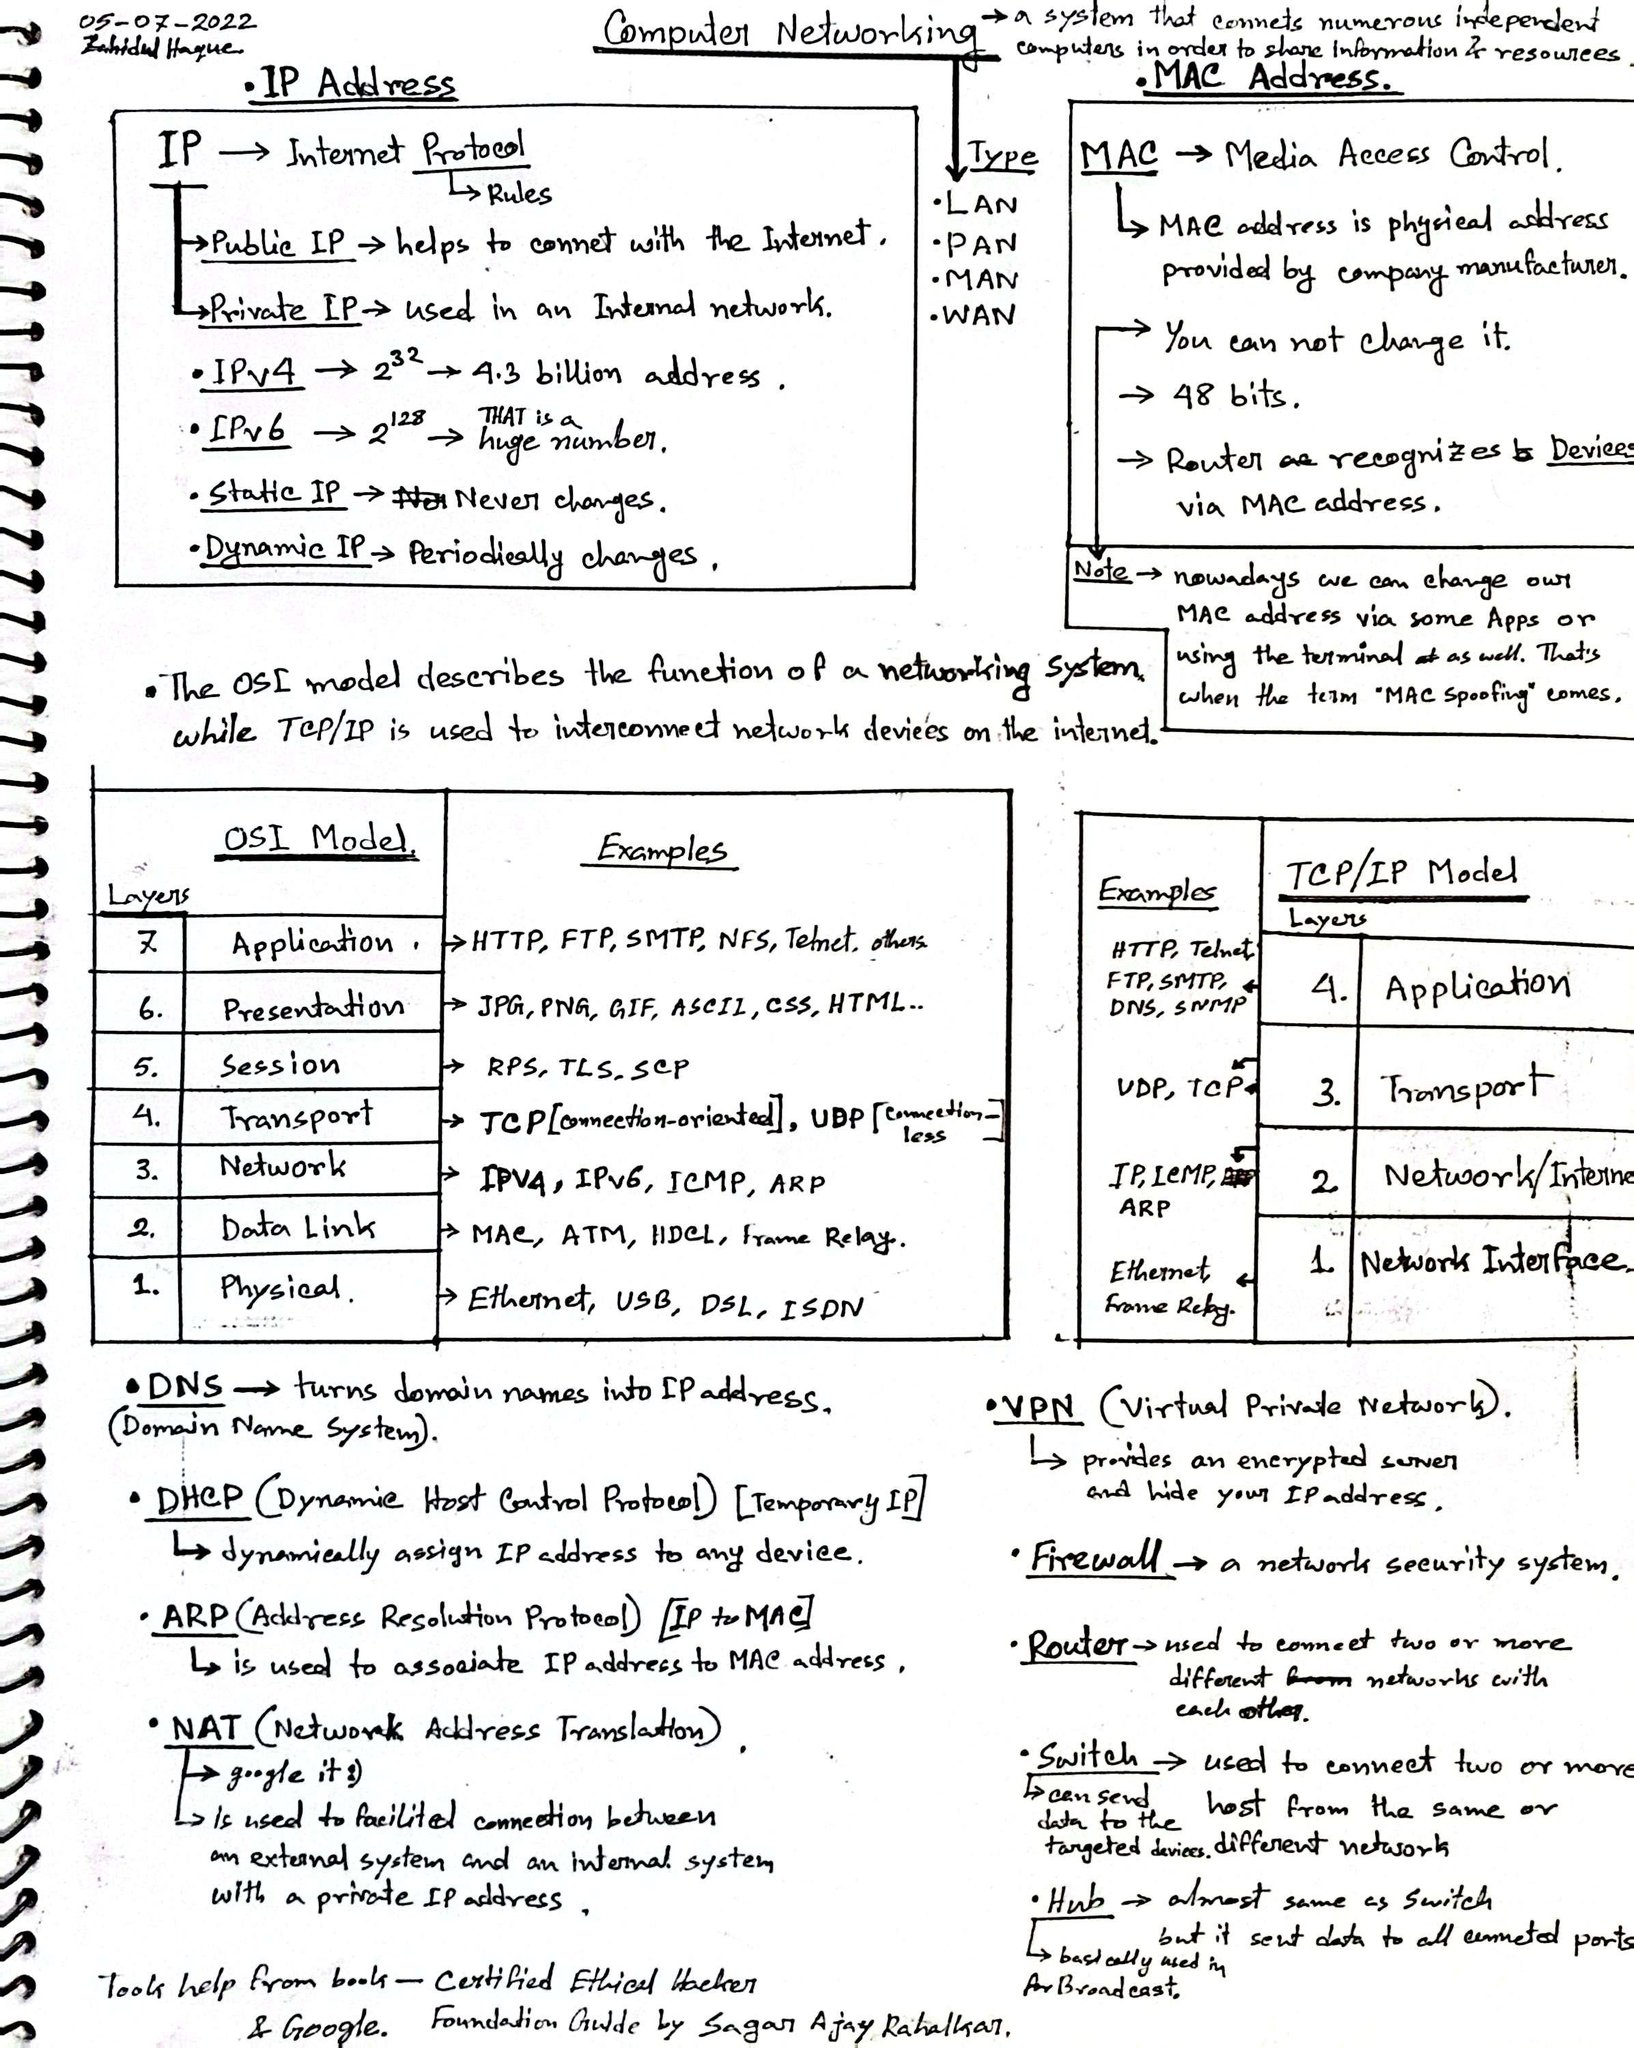 05-07-2022
Zahidul Haque
Computer Networking → a system that connets numerous independent
computers in order to share information & resources.
• IP Address
IP → Internet Protocol
↳ Rules
Public IP → helps to connet with the Internet.
Private IP → used in an Internal network.
• IPv4 → 2^32 → 4.3 billion address.
• IPv6 → 2^128 → THAT is a
huge number.
• Static IP → Never changes.
• Dynamic IP → Periodically changes.
Type
• LAN
• PAN
• MAN
• WAN
• MAC Address.
MAC → Media Access Control.
↳ MAC address is physical address
provided by company manufacturer.
→ You can not change it.
→ 48 bits.
→ Router recognizes Devices
via MAC address.
Note → nowadays we can change our
MAC address via some Apps or
using the terminal as well. That's
when the term "MAC Spoofing" comes.
• The OSI model describes the function of a networking system.
while TCP/IP is used to interconnect network devices on the internet.
OSI Model. Examples
Layers
7. Application. → HTTP, FTP, SMTP, NFS, Telnet. others.
6. Presentation → JPG, PNG, GIF, ASCII, CSS, HTML..
5. Session → RPS, TLS, SCP
4. Transport → TCP [connection-oriented], UDP [connection-
less]
3. Network → IPV4, IPv6, ICMP, ARP
2. Data Link → MAC, ATM, HDCL, Frame Relay.
1. Physical. → Ethernet, USB, DSL, ISDN
Examples TCP/IP Model
Layers
HTTP, Telnet,
FTP, SMTP, ← 4. Application
DNS, SNMP
UDP, TCP ← 3. Transport
IP, ICMP, ← 2. Network/Interne
ARP
Ethernet, ← 1. Network Interface.
Frame Relay.
• DNS → turns domain names into IP address.
(Domain Name System).
• DHCP (Dynamic Host Control Protocol) [Temporary IP]
↳ dynamically assign IP address to any device.
• ARP (Address Resolution Protocol) [IP to MAC]
↳ is used to associate IP address to MAC address.
• NAT (Network Address Translation).
→ google it :)
↳ is used to facilited connection between
an external system and an internal system
with a private IP address.
• VPN (Virtual Private Network).
↳ provides an encrypted server
and hide your IP address.
• Firewall → a network security system.
• Router → used to connect two or more
different networks with
each other.
• Switch → used to connect two or more
host from the same or
different network
↳ can send
data to the
targeted devices.
• Hub → almost same as Switch
but it sent data to all conneted ports
↳ basically used in
for Broadcast.
Took help from book — Certified Ethical Hacker
& Google. Foundation Guide by Sagar Ajay Rahalkar.